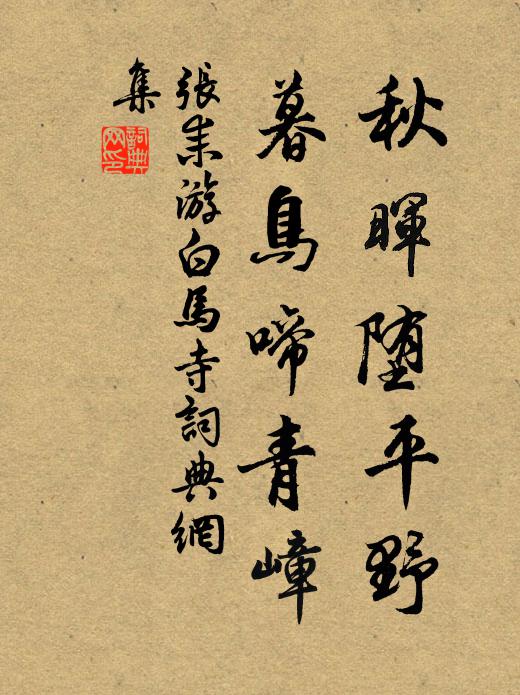 秋暉墮平野
暮鳥啼青嶂
張耒游白馬寺詞典網
集
詞典網印